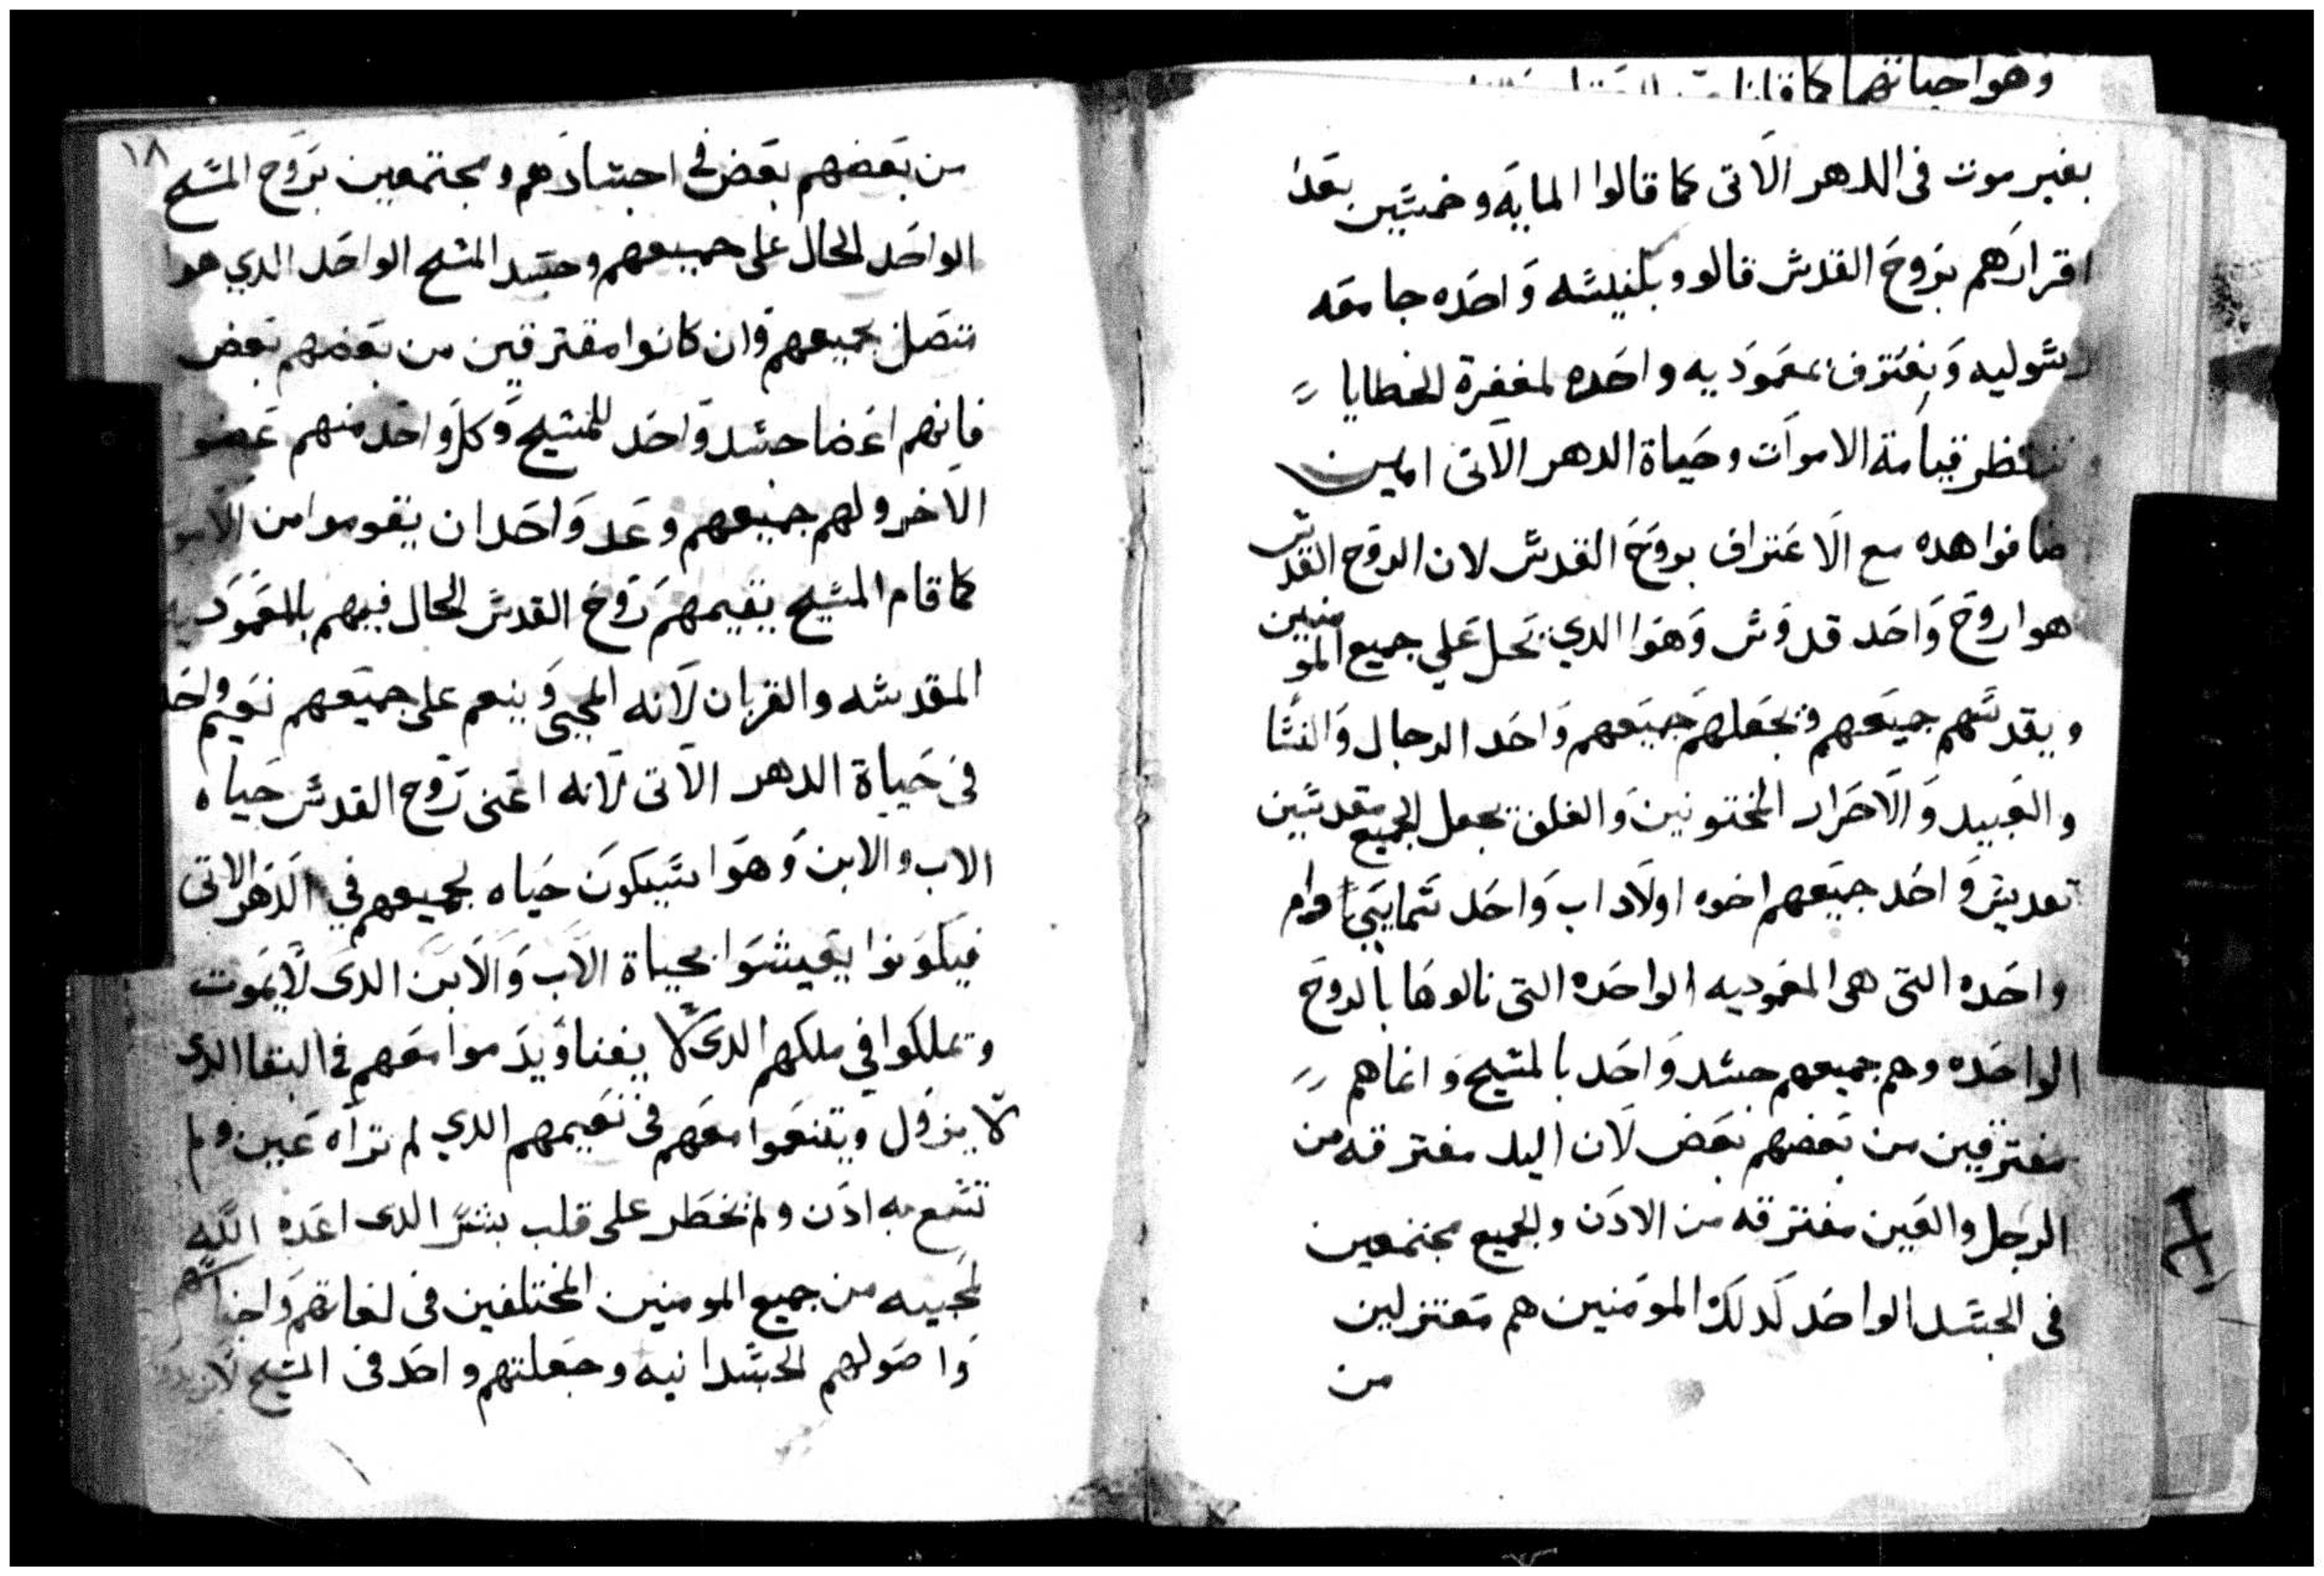 وهوا حياتهما كما
بغير موت فى الدهر الاتى كما قالوا المايه وخمسين بعد
اقرارهم بروح القدس قالوا وبكنيسه واحده جامعه
رسوليه ونعترف بمعموديه واحده لمغفرة الخطايا
وننتظر قيامة الاموات وحياة الدهر الاتى امين
ضافوا هده مع الاعتراف بروح القدس لان الروح القدس
هوا روح واحد قدوس وهوا الدي يحل على جميع المومنين
ويقدسهم جميعهم ويجعلهم جميعهم واحد الرجال والنسا
والعبيد والاحرار المختونين والغلف يجعل الجميع مقدسين
تقديس واحد جميعهم اخوه اولاد اب واحد سمايي وام
واحده التى هى المعموديه الواحده التى نالوها بالروح
الواحده وهم جميعهم جسد واحد بالمسيح وانما هم
مفترقين من بعضهم بعض لان اليد مفترقه من
الرجل والعين مفترقه من الادن والجميع مجتمعين
فى الجسد الواحد كدلك المومنين هم مفترلين
من
١٨
من بعضهم بعض فى اجسادهم ومجتمعين بروح المسيح
الواحد الحال على جميعهم وجسد المسيح الواحد الدي هوا
متصل بجميعهم وان كانوا مفترقين من بعضهم بعض
فانهم اعضا جسد واحد للمسيح وكل واحد منهم عضوا
الاخر ولهم جميعهم وعد واحد ان يقوموا من الامو
كما قام المسيح يقيمهم روح القدس الحال فيهم بالمعموديه
المقدسه والقربان لانه المحيي وينعم على جميعهم نعيم واحد
فى حياة الدهر الاتى لانه اعنى روح القدس حياه
الاب والابن وهوا سيكون حياه لجميعهم في الدهر الاتى
فيكونوا يعيشوا بحياة الاب والابن الدى لا يموت
وتملكوا في ملكهم الدى لا يفنا ويدموا معهم فى البقا الدى
لا يزول ويتنعموا معهم فى نعيمهم الدي لم تراه عين ولم
تسمع به ادن ولم تخطر على قلب بشر الدى اعده الله
لمحبيه من جميع المومنين المختلفين فى لغاتهم واجناسهم
واصولهم الجسدانيه وجعلتهم واحد فى المسيح